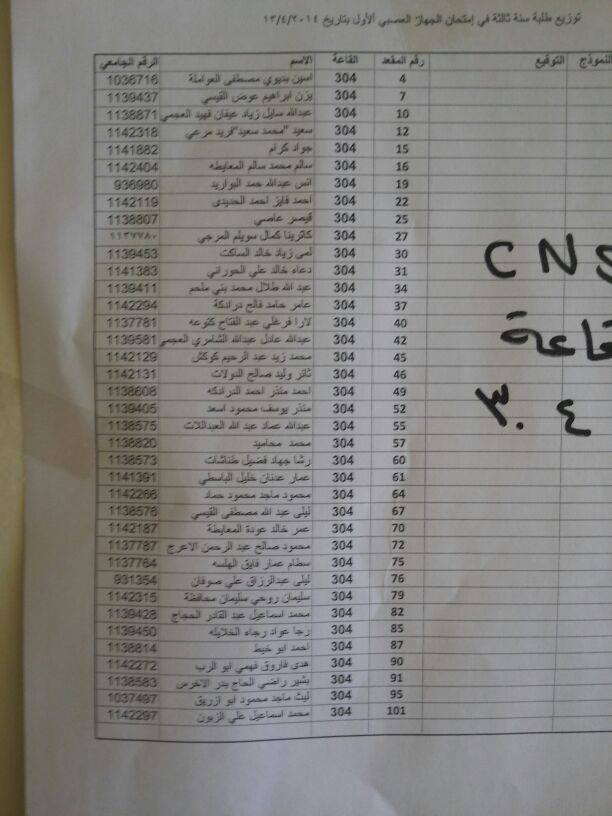 توزيع طلبة سنة ثالثة في إمتحان الجهاز العصبي الأول بتاريخ ١٣/٤/٢٠١٤
الرقم الجامعي الاسم القاعة رقم المقعد التوقيع النموذج
1036716 اسين بديوي مصطفى العواملة 304 4
1139437 يزن ابراهيم عوض القيسي 304 7
1138871 عبدالله سايل زياد عيفان فهيد العجمي 304 10
1142318 سعيد "محمد سعيد" فريد مرعي 304 12
1141882 جواد كرام 304 15
1142404 سالم محمد سالم المعايطه 304 16
936980 انس عبدالله حمد البواريد 304 19
1142119 احمد فايز احمد الحديدى 304 22
1138807 قيصر عاصي 304 25
١١٣٧٧٨٠ كاترينا كمال سويلم المرجي 304 27
1139453 لمى زياد خالد الساكت 304 30
1141383 دعاء خالد علي الحوراني 304 31
1139411 عبد الله طلال محمد بني ملحم 304 34
1142294 عامر حامد فالح درادكة 304 37
1137781 لارا فرغلي عبد الفتاح كتوعه 304 40
1139581 عبدالله عادل عبدالله الشامري العجمي 304 42
1142129 محمد زيد عبد الرحيم كوكش 304 45
1142131 ثائر وليد صالح الدولات 304 46
1138608 احمد منذر احمد الدرادكه 304 49
1139405 منذر يوسف محمود اسعد 304 52
1138575 عبدالله عماد عبد الله العبداللات 304 55
1138820 محمد محاميد 304 57
1138573 رشا جهاد فضيل طناشات 304 60
1141391 عمار عدنان خليل الباسطي 304 61
1142266 محمود ماجد محمود حماد 304 64
1138576 ليلى عبد الله مصطفى القيسي 304 67
1142187 عمر خالد عودة المعايطة 304 70
1137787 محمود صالح عبد الرحمن الاعرج 304 72
1137764 سطام عمار فايق الهلسه 304 75
931354 ليلى عبدالرزاق علي صوفان 304 76
1142315 سليمان روحي سليمان محافظة 304 79
1139428 محمد اسماعيل عبد القادر الحجاج 304 82
1139450 رجا عواد رجاء الخلايله 304 85
1138814 احمد ابو خيط 304 87
1142272 هدى فاروق فهمي ابو الرب 304 90
1138583 بشير راضي الحاج بدر الاخرس 304 91
1037497 ليث ماجد محمود ابو ازريق 304 95
1142297 محمد اسماعيل علي الزبون 304 101
CNS
قاعة
٣٠٤